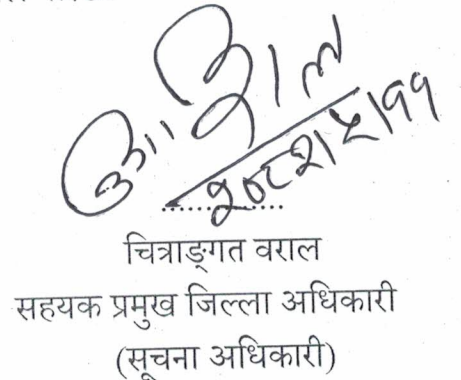 २०८२।५।११
चित्राङ्गत वराल
सहयक प्रमुख जिल्ला अधिकारी
(सूचना अधिकारी)